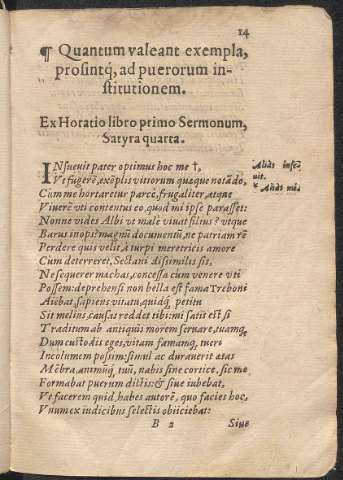 14
¶ Quantum valeant exempla,
prosintq́, ad puerorum in-
stitutionem.
Ex Horatio libro primo Sermonum,
Satyra quarta.
INsueuit pater optimus hoc me †,
Vt fugerē, exēplis vitiorum quæque notādo,
Cùm me hortaretur parcè, frugaliter, atque
Viuerē vti contentus eo, quod mi ipse parasset:
Nonne vides Albi vt malè viuat filius? vtque
Barus inops? magnū documentū, ne patriam rē
Perdere quis velit, à turpi meretricis amore
Cùm deterreret, Sectani dissimilis sis,
Ne sequerer mœchas, concessa cùm venere vti
Possem: deprehensi non bella est fama Treboni
Aiebat, sapiens vitatu, quidq́ petitu
Sit melius, causas reddet tibi: mi satis est si
Traditum ab antiquis morem seruare, tuamq́
Dum custodis eges, vitam famamq́, tueri
Incolumem possim: simul ac durauerit ætas
Mēbra, animūq́ tuū, nabis sine cortice, sic me
Formabat puerum dictis: & siue iubebat,
Vt facerem quid, habes autorē, quo facies hoc,
Vnum ex iudicibus selectis obiiciebat:
Aliâs insē-
uit.
* Aliâs
B 2 Siue